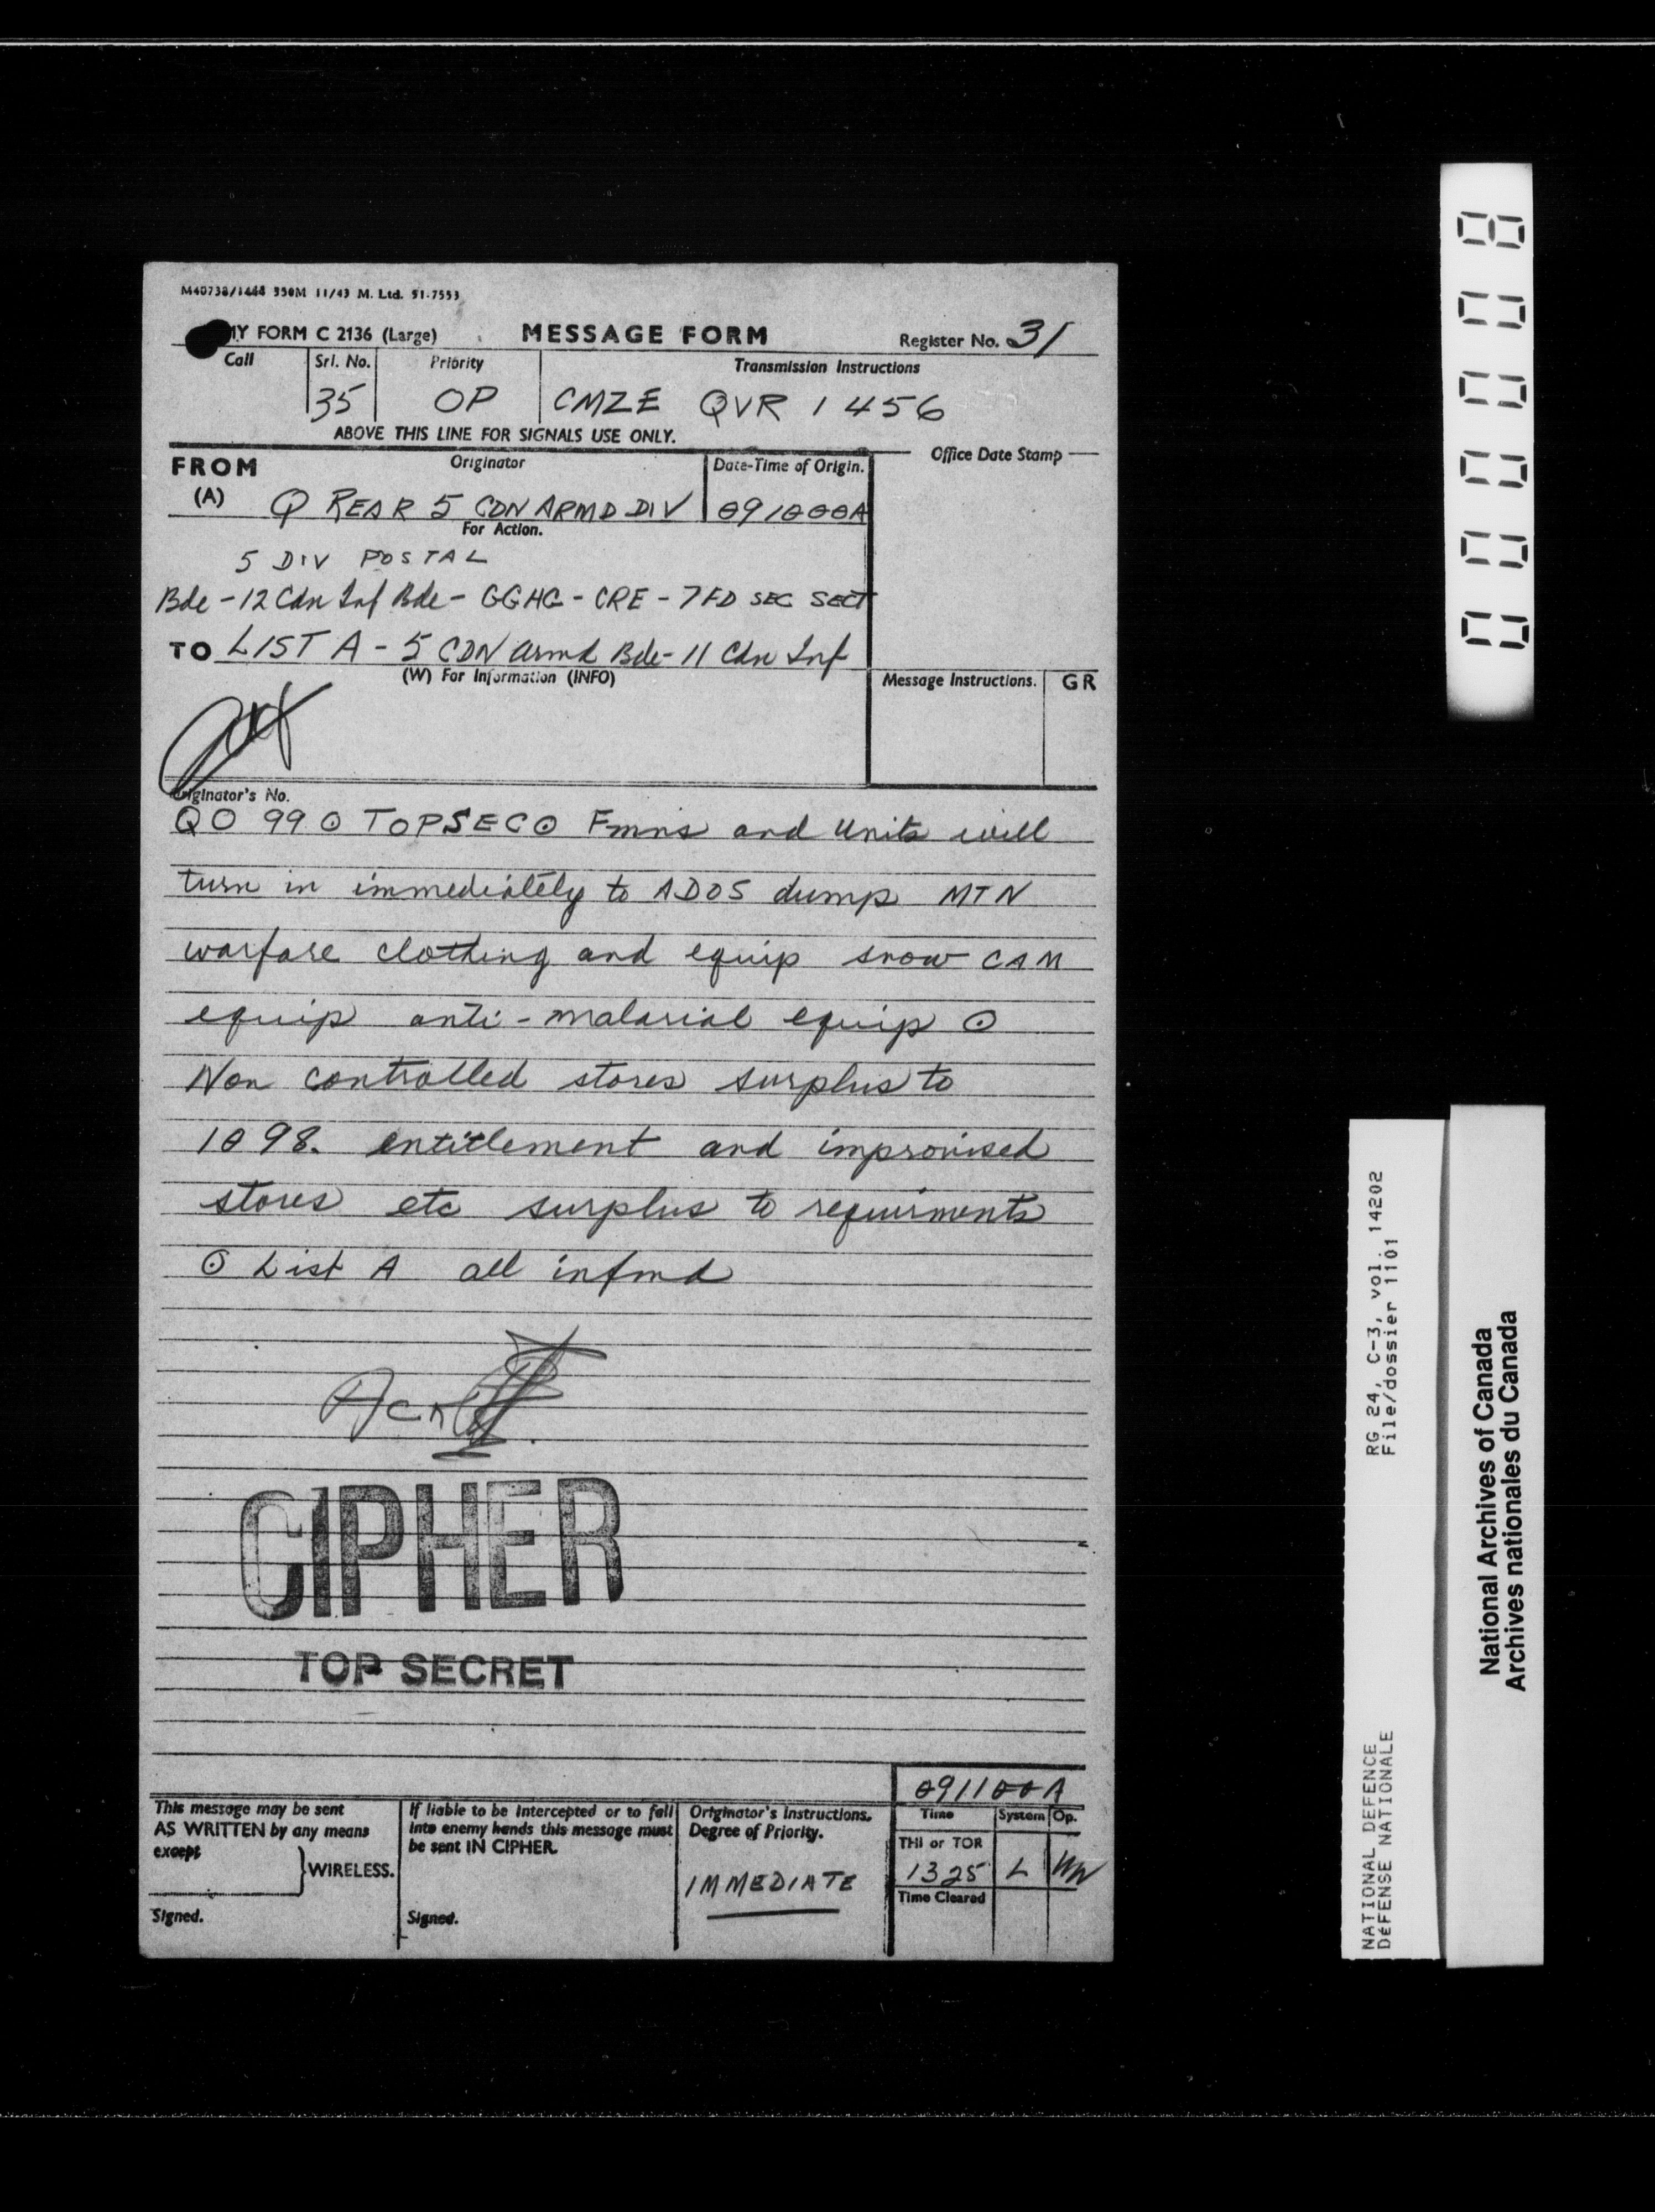 M40738/1444 350M 11/43 M. Ltd. 51-7553
MY FORM C 2136 (Large) MESSAGE FORM Register No. 31
Call Srl. No. Priority Transmission Instructions
35 OP CMZE QVR 1456
ABOVE THIS LINE FOR SIGNALS USE ONLY.
FROM Originator Date-Time of Origin. Office Date Stamp
(A) Q REAR 5 CDN ARMD DIV 091000A
For Action.
5 DIV POSTAL
Bde - 12 Cdn Inf Bde - GGHG - CRE - 7 FD SEC SECT
TO LIST A - 5 CDN Armd Bde - 11 Cdn Inf
(W) For Information (INFO) Message Instructions. GR
Originator's No.
QO 99 ⊙ TOPSEC ⊙ Fmns and Units will
turn in immediately to ADOS dump MTN
warfare clothing and equip snow CAM
equip anti-malarial equip ⊙
Non controlled stores surplus to
1098. entitlement and improvised
stores etc surplus to requirments
⊙ List A all infmd
CIPHER
TOP SECRET
091100A
This message may be sent
AS WRITTEN by any means
except
WIRELESS.
Signed.
If liable to be intercepted or to fall
into enemy hands this message must
be sent IN CIPHER.
Signed.
Originator's Instructions.
Degree of Priority.
IMMEDIATE
Time System Op.
THI or TOR
1325 L
Time Cleared
000008
RG 24, C-3, vol. 14202
File/dossier 1101
NATIONAL DEFENCE
DéFENSE NATIONALE
National Archives of Canada
Archives nationales du Canada